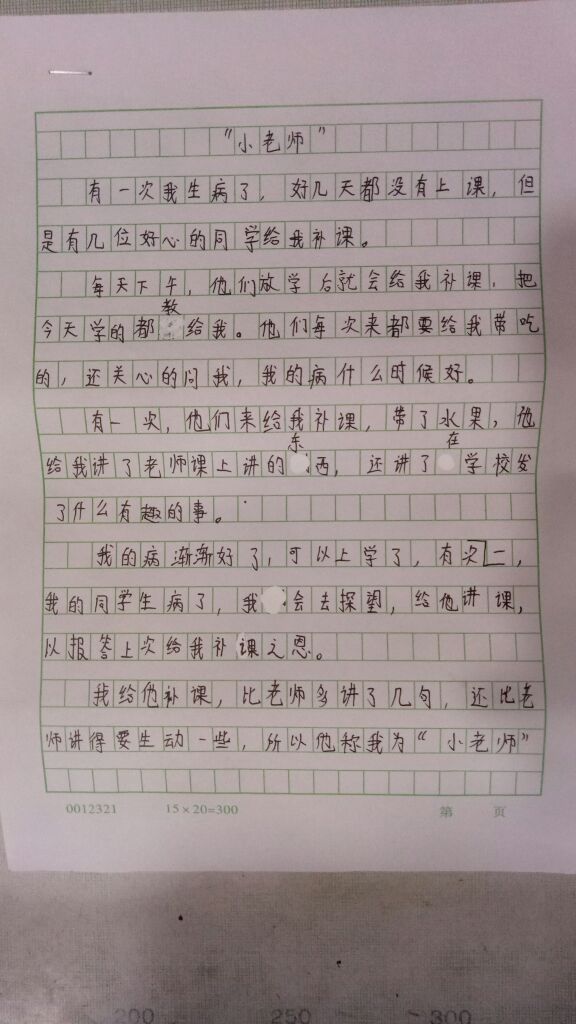 “小老师”
有一次我生病了，好几天都没有上课，但
是有几位好心的同学给我补课。
每天下午，他们放学后就会给我补课，把
今天学的都教给我。他们每次来都要给我带吃
的，还关心的问我，我的病什么时候好。
有一次，他们来给我补课，带了水果，他
给我讲了老师课上讲的东西，还讲了在学校发
了什么有趣的事。
我的病渐渐好了，可以上学了，有次一，
我的同学生病了，我会去探望，给他讲课，
以报答上次给我补课之恩。
我给他补课，比老师多讲了几句，还比老
师讲得要生动一些，所以他称我为“小老师”
0012321 15×20=300 第 页
200 250 300